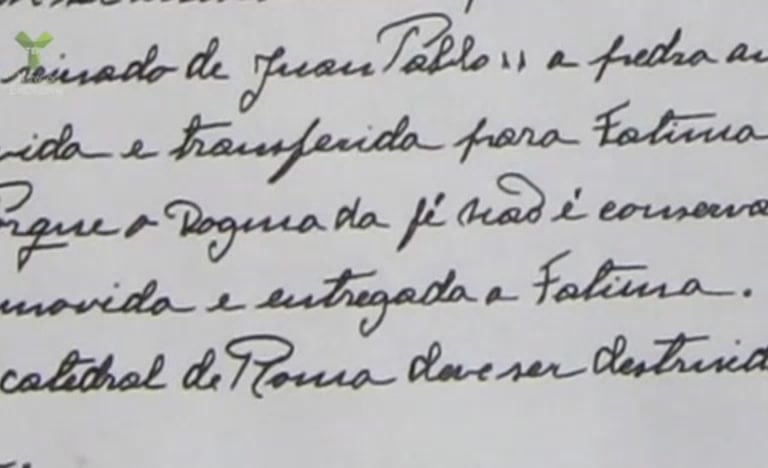 reinado de Juan Pablo II a pedra an
vida e transferida para Fatima
orque o Dogma da fé não é conserva
movida e entregada a Fatima.
catedral de Roma deve ser destruid